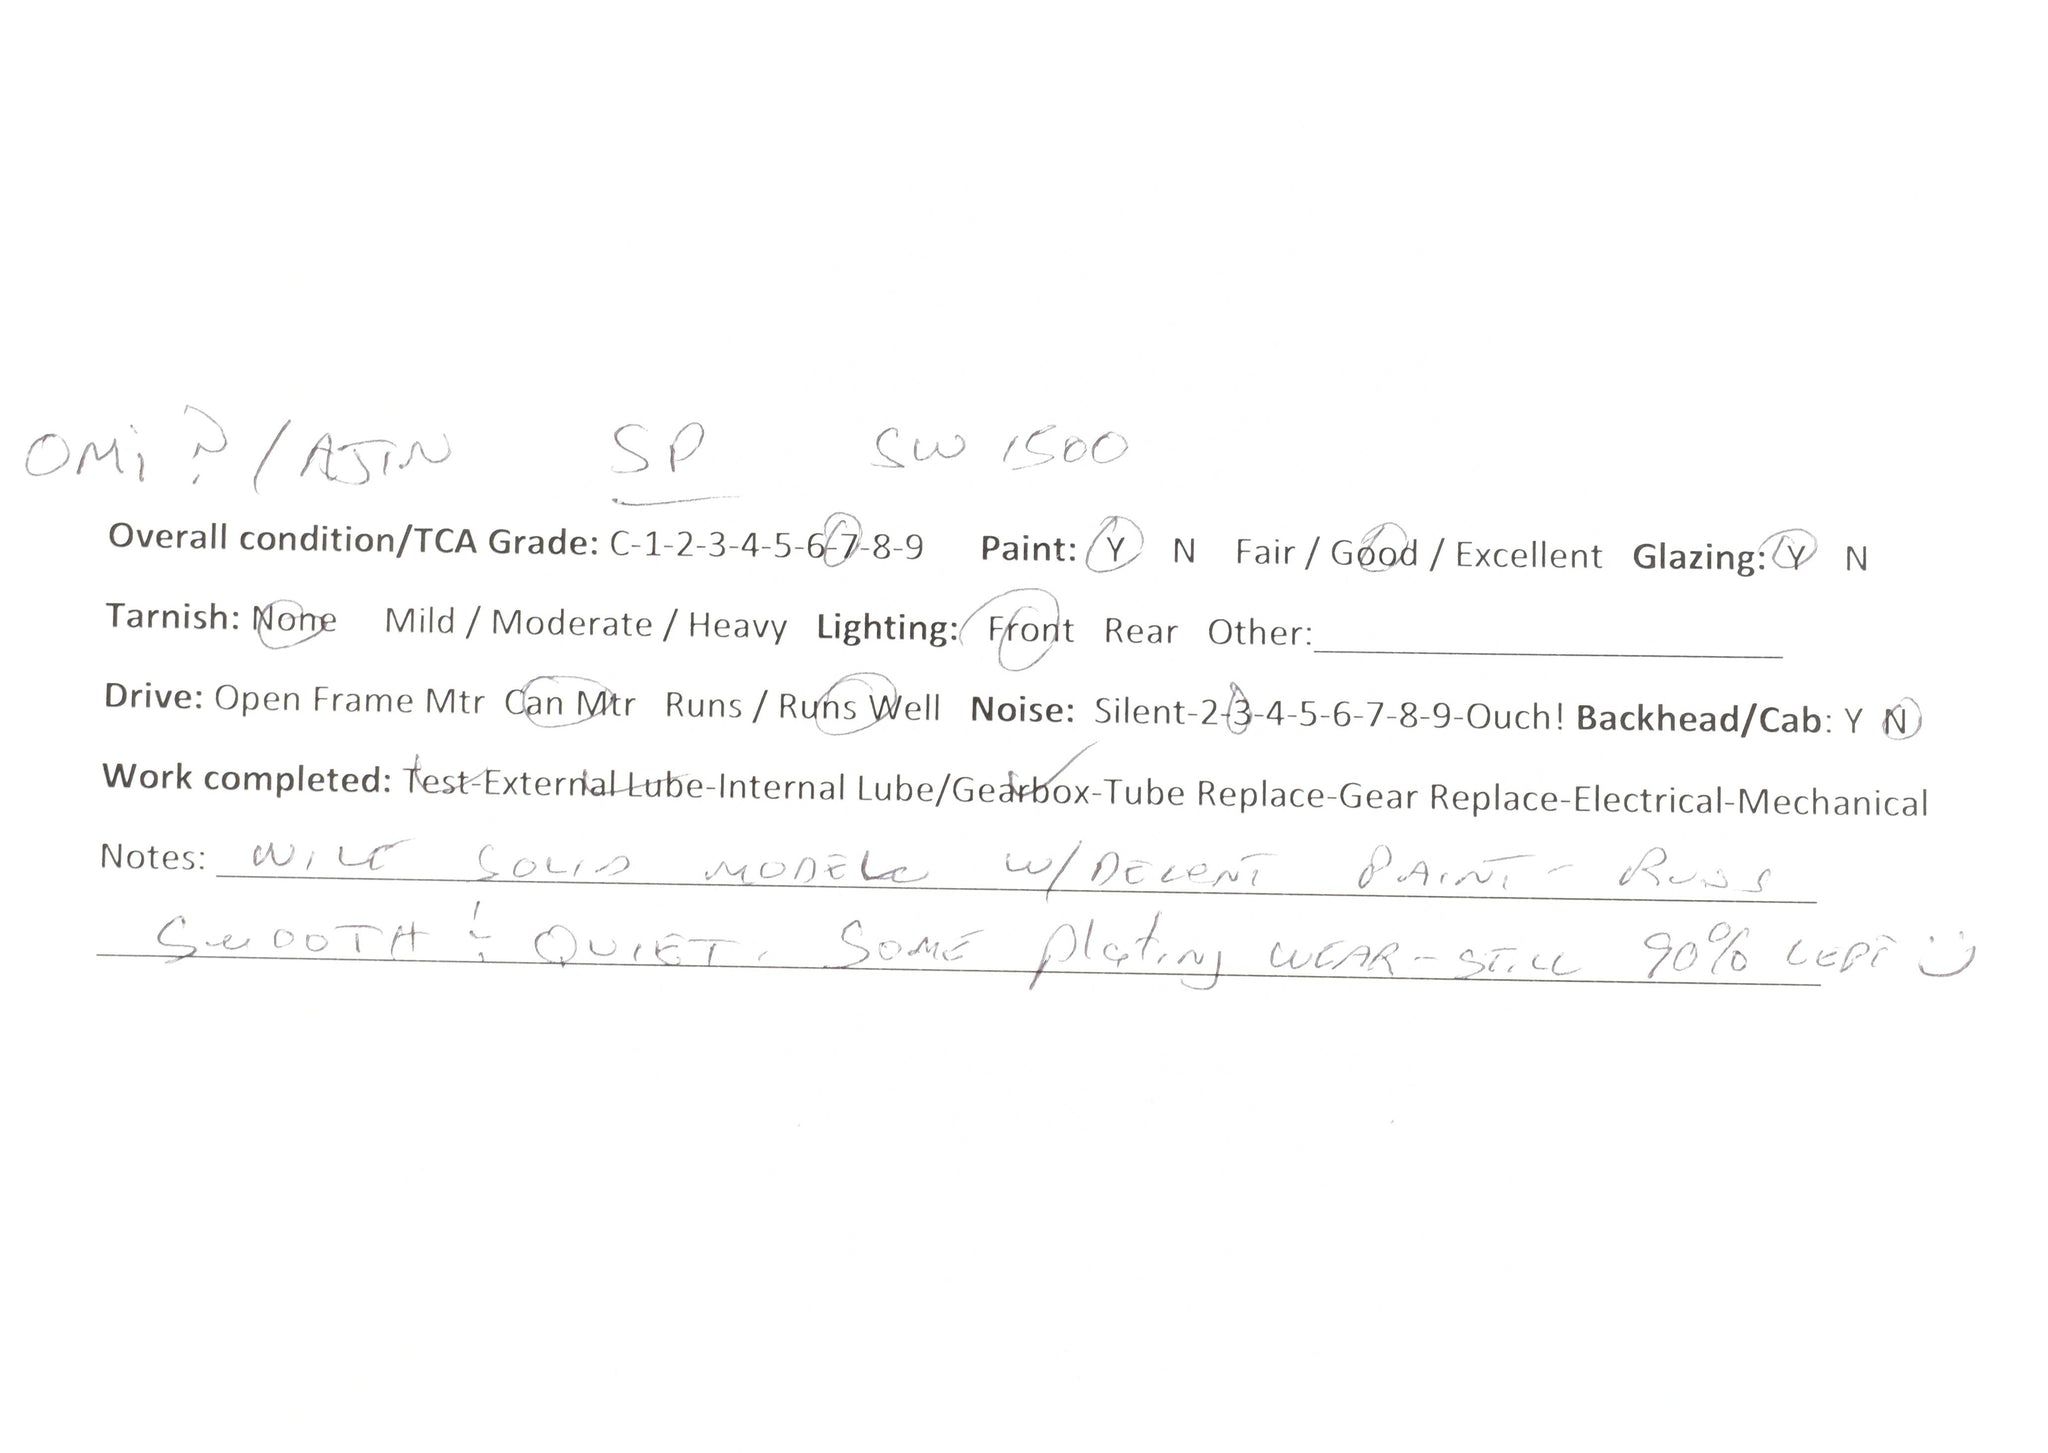 OMi ? / AJIN SP SW 1500
Overall condition/TCA Grade: C-1-2-3-4-5-6-7-8-9 Paint: Y N Fair / Good / Excellent Glazing: Y N
Tarnish: None Mild / Moderate / Heavy Lighting: Front Rear Other:
Drive: Open Frame Mtr Can Mtr Runs / Runs Well Noise: Silent-2-3-4-5-6-7-8-9-Ouch! Backhead/Cab: Y N
Work completed: Test-External Lube-Internal Lube/Gearbox-Tube Replace-Gear Replace-Electrical-Mechanical
Notes: NICE SOLID MODEL W/DECENT PAINT - RUNS
SMOOTH & QUIET. SOME plating WEAR - STILL 90% LEFT :)